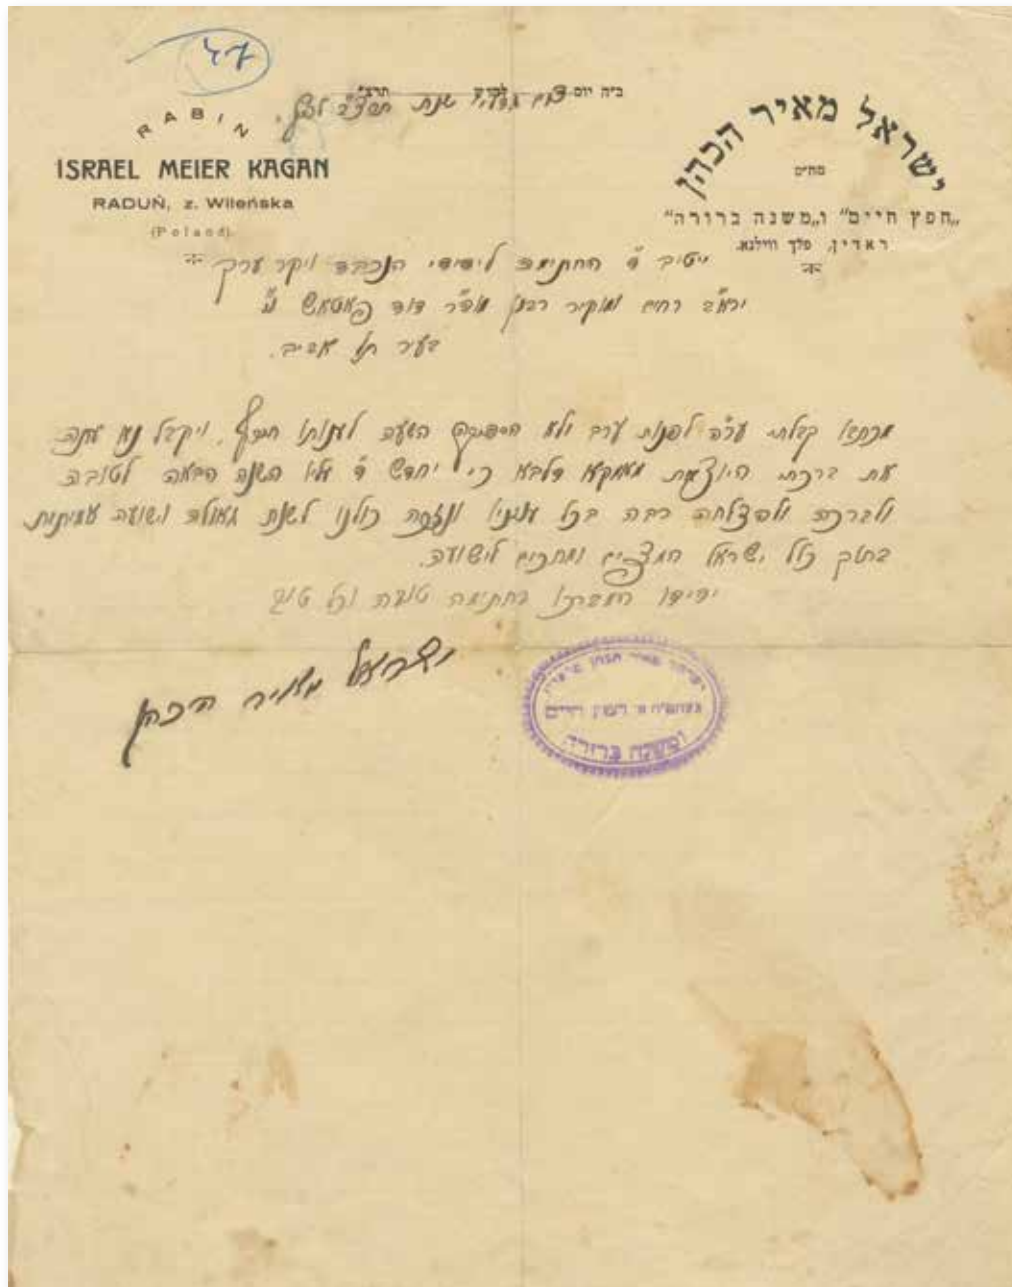 47
ב״ה יום לחודש תרצ״
צום גדליה שנת תרצ״ב לפ״ק
RABIN
ISRAEL MEIER KAGAN
RADUŃ, z. Wileńska
(Poland).
ישראל מאיר הכהן
מח״ס
„חפץ חיים" ו„משנה ברורה"
ראדין, פלך ווילנא.
ייטיב ד׳ החתימה לידידי הנכבד ויקר ערך
ירא״ה רחים ומוקיר רבנן מו״ר דוד נ״י
בעיר תל אביב.
מכתבו קבלתי ער״ה לפנות ערב ולא הספיקה השעה לענותו תיכף, ויקבל נא עתה
את ברכתי היוצאת מעמקא דלבא כי יחדש ד׳ עליו השנה הבאה לטובה
ולברכה ולהצלחה רבה בכל עניניו ונזכה כולנו לשנת גאולה וישועה אמיתית
בתוך כלל ישראל המצפים ומחכים לישועה.
ידידו המברכו בחתימה טובה וכל טוב
ישראל מאיר הכהן
ישראל מאיר הכהן
חפץ חיים
ומשנה ברורה